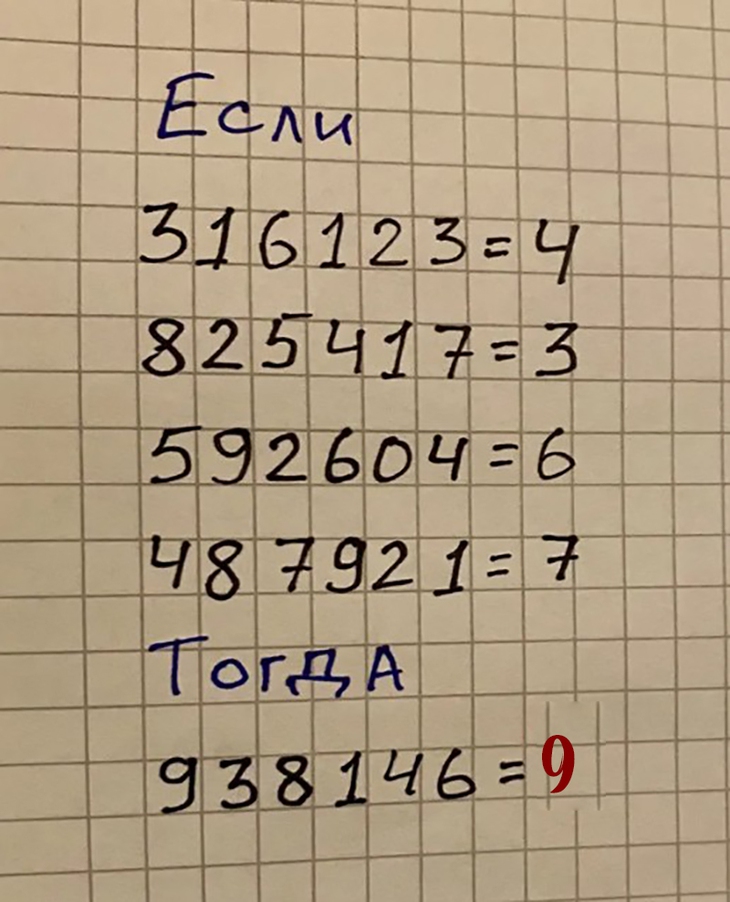 Если
316123=4
825417=3
592604=6
487921=7
Тогда
938146=9